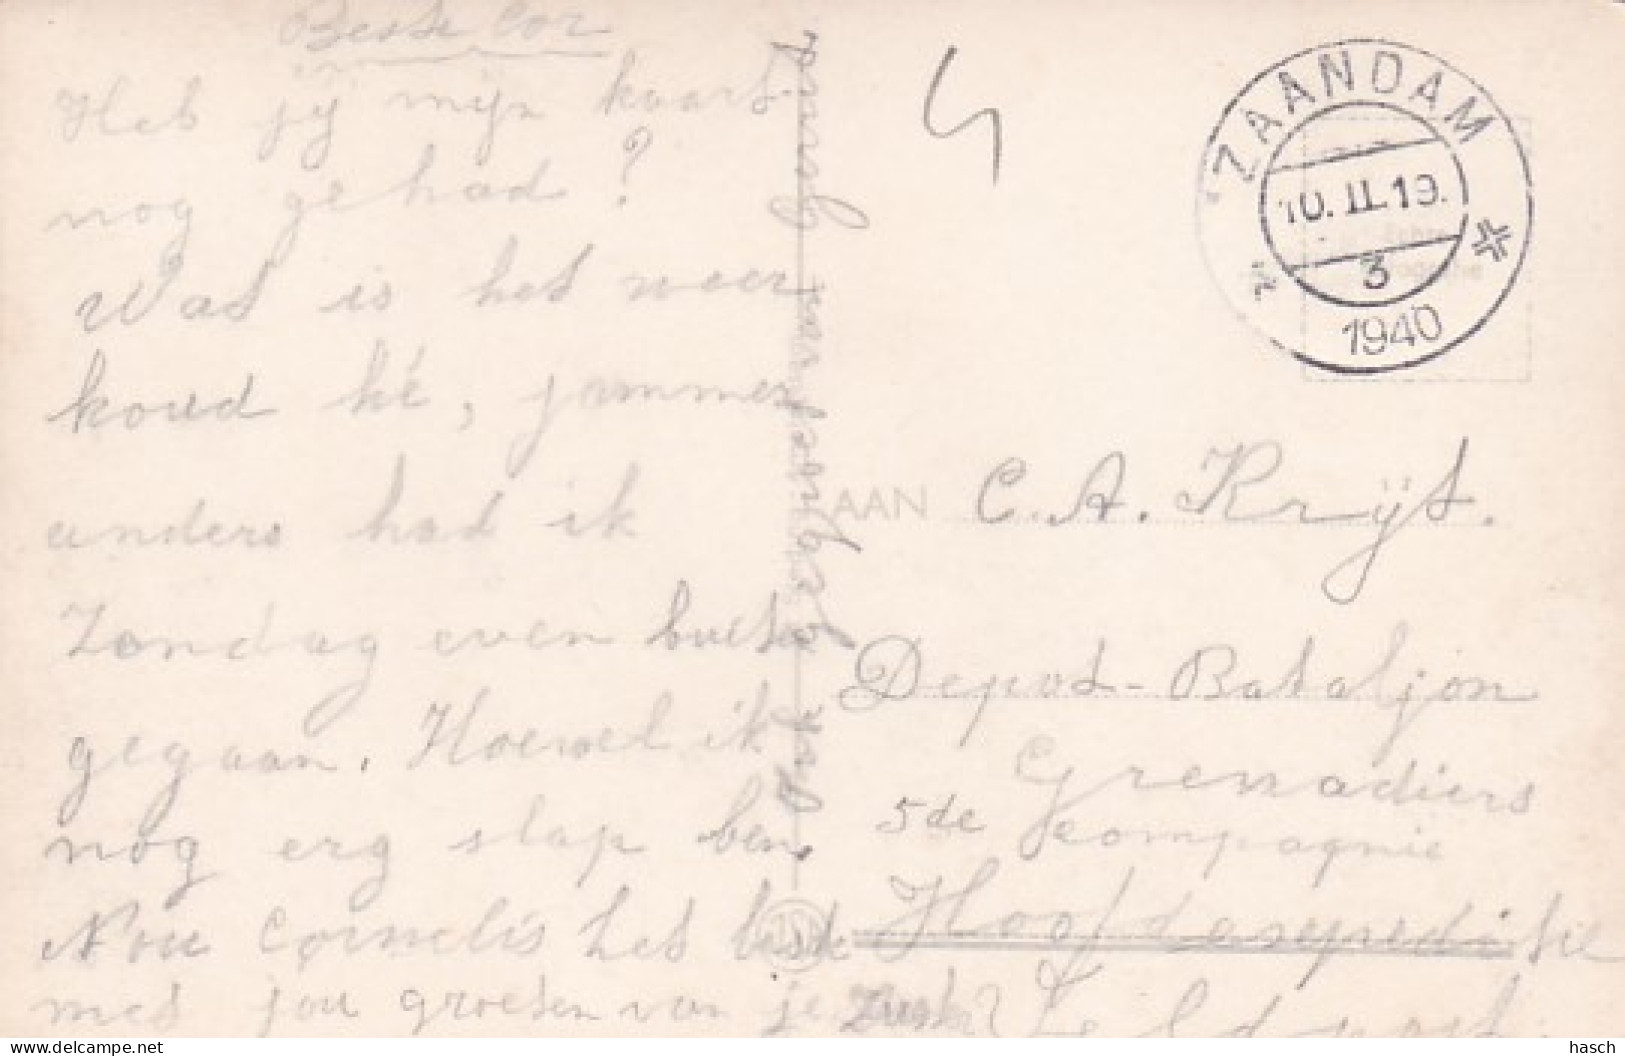 Beste Cor
Heb jij mijn kaart
nog gehad?
Wat is het weer
koud hé, jammer
anders had ik
Zondag even buiten
gegaan. Hoewel ik
nog erg slap ben.
Nou Cornelis het beste
met jou groeten van je
4
ZAANDAM
10.II.19.
3
1940
AAN C. A. Krijt.
Depot-Bataljon
Grenadiers
5de Compagnie
Hoofdexpeditie
Veldpost.
hasch